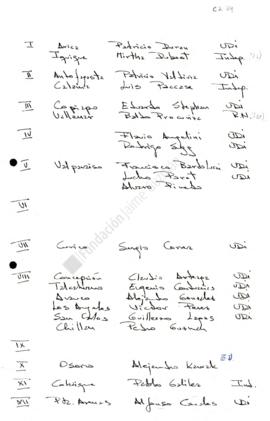 C2 29
I Arica Patricio Duran UDI
Iquique Mirtha Dubost Indep.
II Antofagasta Patricio UDI
Calama Luis Indep.
III Copiapo Eduardo Stephen UDI
Vallenar R.N.
IV Flavio Angelini UDI
Rodrigo UDI
V Valparaiso Francisco Bartolucci UDI
Lucho Parot UDI
Alvaro Pineda
VI
VII Curico Sergio Correa UDI
VIII Concepción Claudio UDI
Talcahuano Eugenio Cantuarias UDI
Arauco Alejandro Gonzalez UDI
Los Angeles Victor Perez UDI
San Carlos Guillermo Lopez UDI
Chillan Pedro Guzman
IX
X Osorno Alejandro
XI Coihaique Pablo Galilea Ind.
XII Pta. Arenas Alfonso UDI
Fundación Jaime